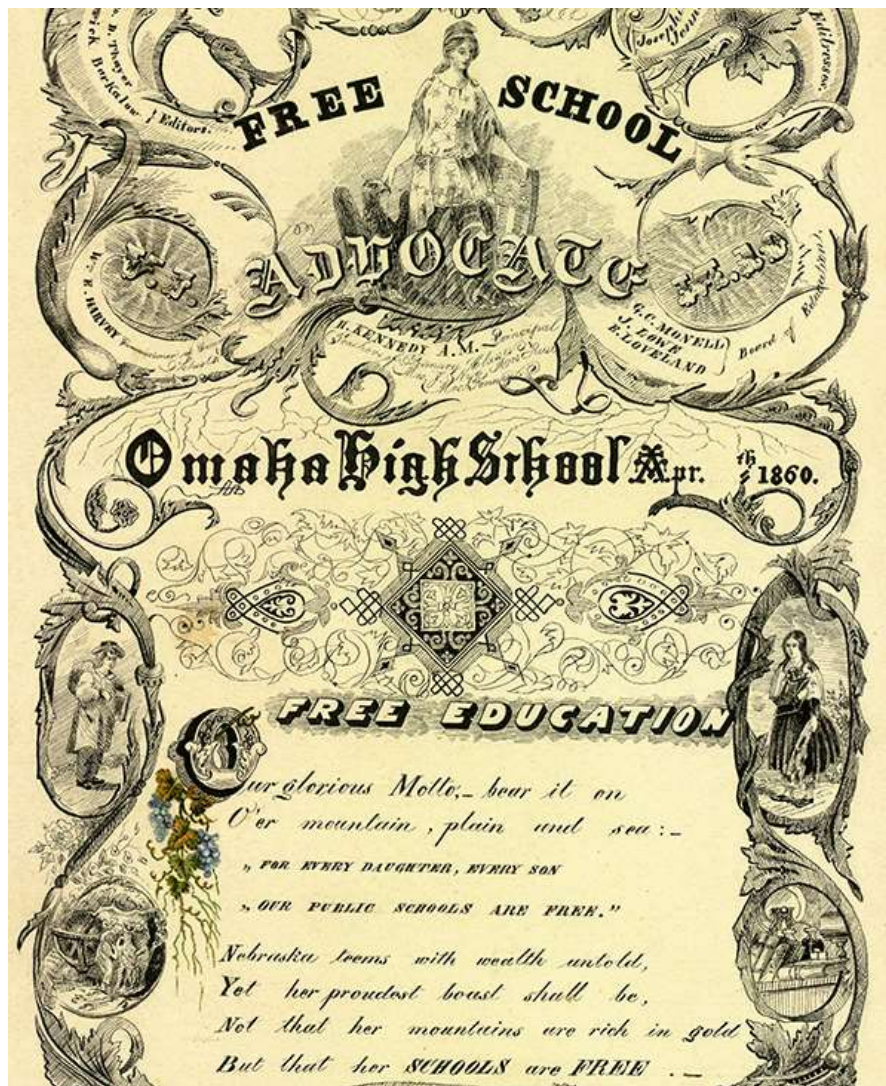 Thayer
Barkalow } Editors.
Editresses.
FREE SCHOOL
ADVOCATE
V.I.
No.
Wm. E. HARVEY
H. KENNEDY A.M. Principal
G.C. MONELL
J. LOWE
E. LOVELAND
Board of Education
Omaha High School Apr. th 1860.
FREE EDUCATION
Our glorious Motto,- bear it on
O'er mountain, plain and sea:-
„ FOR EVERY DAUGHTER, EVERY SON
„ OUR PUBLIC SCHOOLS ARE FREE."
Nebraska teems with wealth untold,
Yet her proudest boast shall be,
Not that her mountains are rich in gold
But that her SCHOOLS are FREE .-